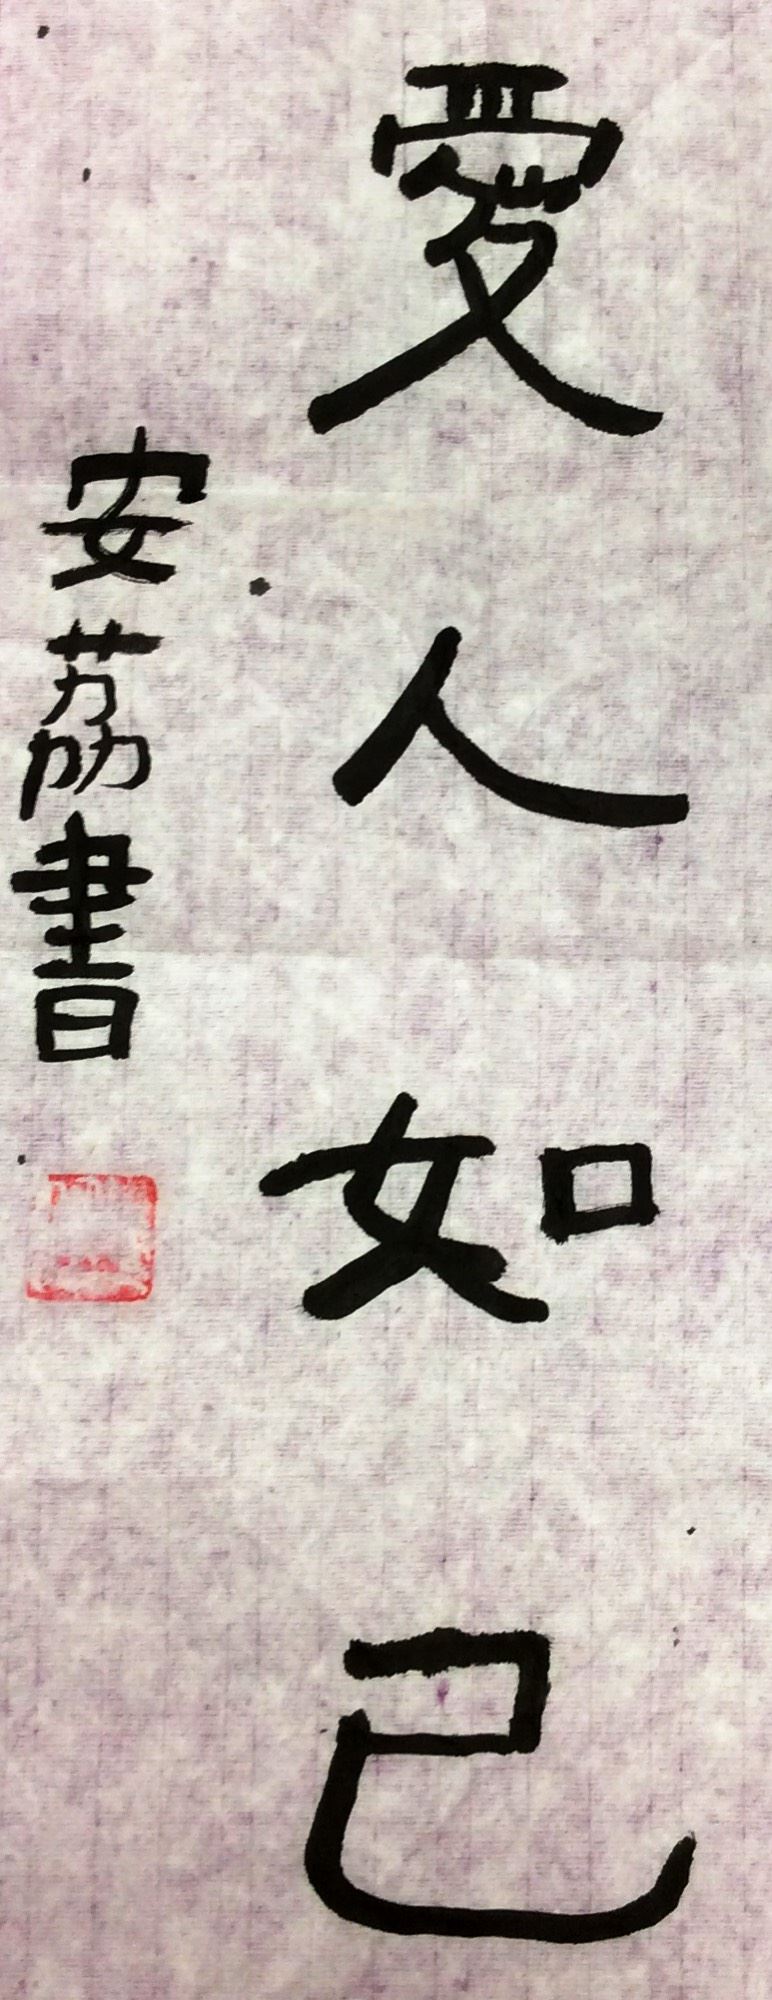 愛人如己
安荔書